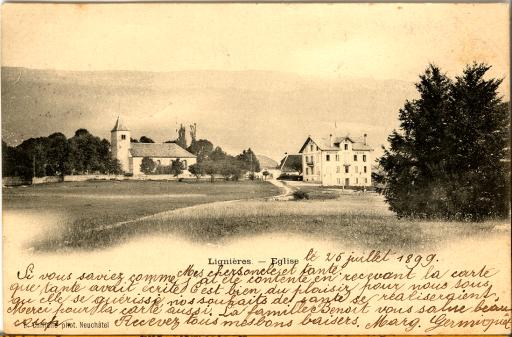 Lignières. — Eglise
le 26 juillet 1899.
Mes chers oncle et tante
Si vous saviez comme j'ai été contente en recevant la carte
que tante avait écrite. C'est bien du plaisir pour nous sous
qu'elle se guérisse, nos souhaits de santé se réaliseraient.
Merci pour la carte aussi. La famille Benoit vous salue beau-
coup. Recevez tous mes bons baisers. Marg. Germiquet
phot. Neuchâtel